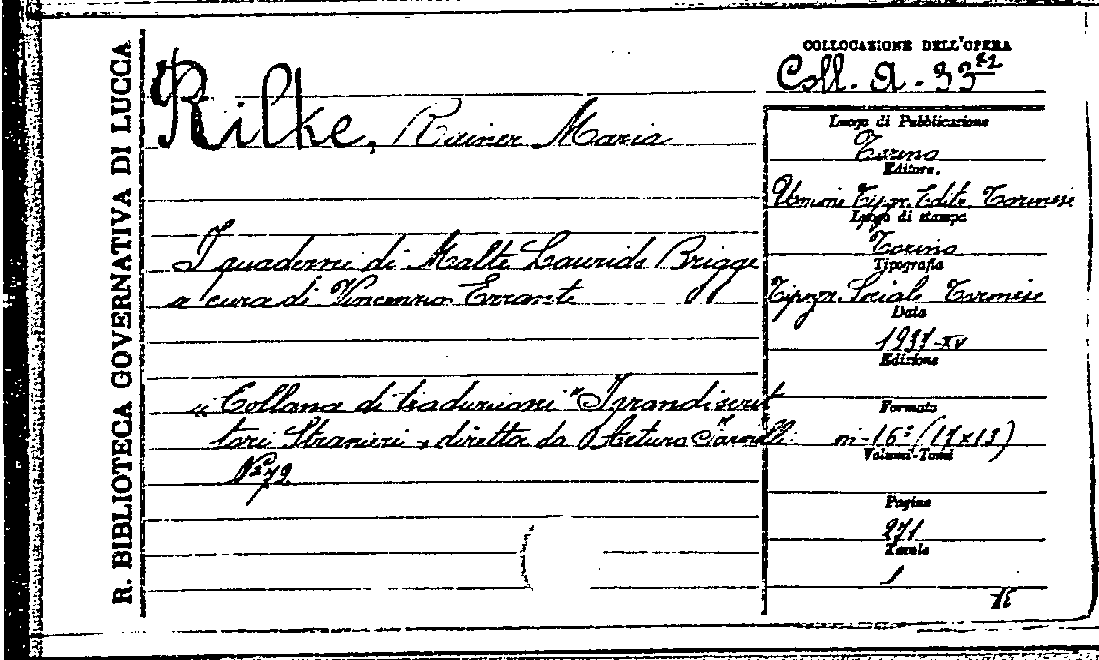 R. BIBLIOTECA GOVERNATIVA DI LUCCA
Rilke, Rainer Maria
I quaderni di Malte Laurids Brigge
a cura di Vincenzo Errante
"Collana di traduzioni "I grandi scrit
tori Stranieri", diretta da Arturo Farinelli
N° 79
COLLOCAZIONE DELL'OPERA
Coll. A - 33
Luogo di Pubblicazione
Torino
Editore.
Unione Tipogr. Edit. Torinese
Luogo di stampa
Torino
Tipografia
Tipogr. Sociale Torinese
Data
XV
Edizione
Formato
in-16°
Volumi-Tomi
Pagine
271
Tavole
1